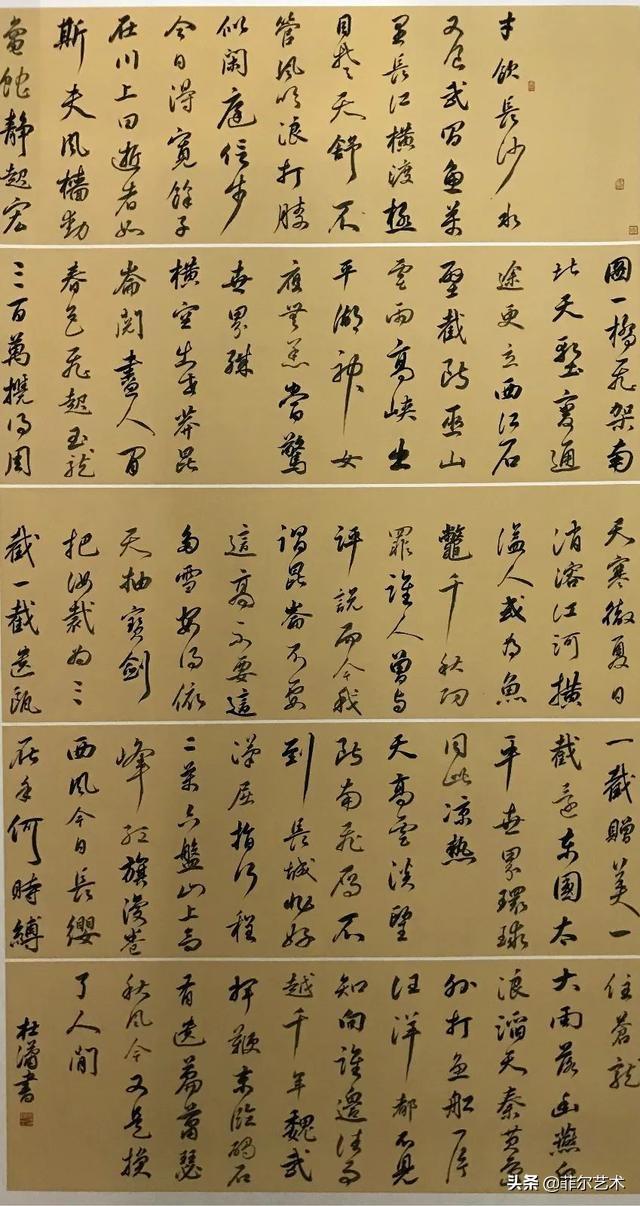 才飲長沙水
又食武昌魚萬
里長江橫渡極
目楚天舒不
管風吹浪打勝
似閑庭信步
今日得寬餘子
在川上曰逝者如
斯夫風檣動
龜蛇靜起宏
圖一橋飛架南
北天塹變通
途更立西江石
壁截斷巫山
雲雨高峽出
平湖神女
應無恙當驚
世界殊
橫空出世莽昆
崙閱盡人間
春色飛起玉龍
三百萬攪得周
天寒徹夏日
消溶江河橫
溢人或為魚
鱉千秋功
罪誰人曾與
評說而今我
謂昆崙不要
這高不要這
多雪安得倚
天抽寶劍
把汝裁為三
截一截遺歐
一截贈美一
截還東國太
平世界環球
同此涼熱
天高雲淡望
斷南飛雁不
到長城非好
漢屈指行程
二萬六盤山上高
峰紅旗漫卷
西風今日長纓
在手何時縛
住蒼龍
大雨落幽燕白
浪滔天秦皇島
外打魚船一片
汪洋都不見
知向誰邊往事
越千年魏武
揮鞭東臨碣石
有遺篇蕭瑟
秋風今又是換
了人間
杜書
头条 @菲尔艺术